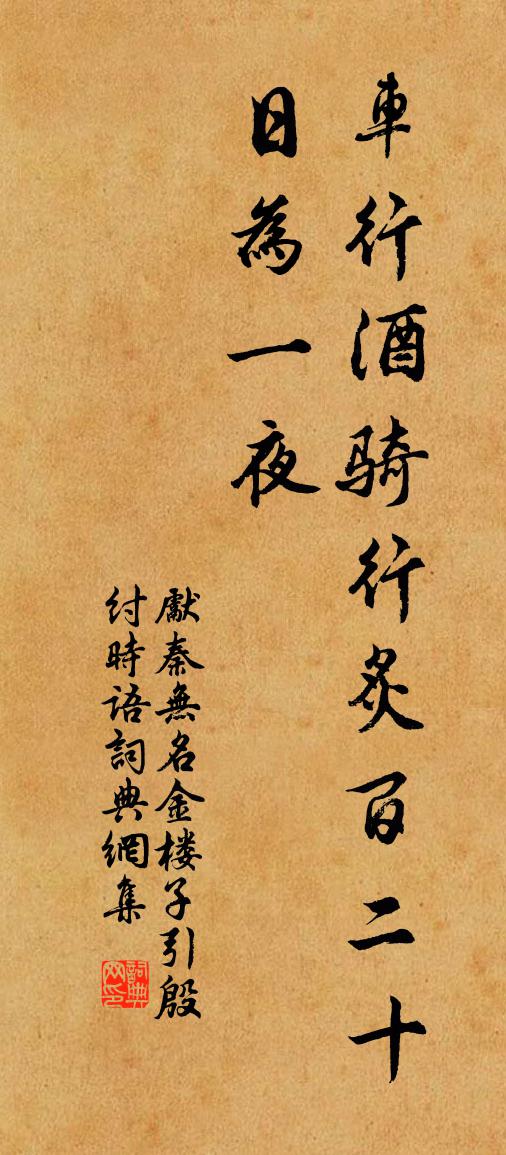 車行酒騎行炙百二十
日為一夜
獻秦無名金楼子引殷
紂時语詞典網集
詞典网印